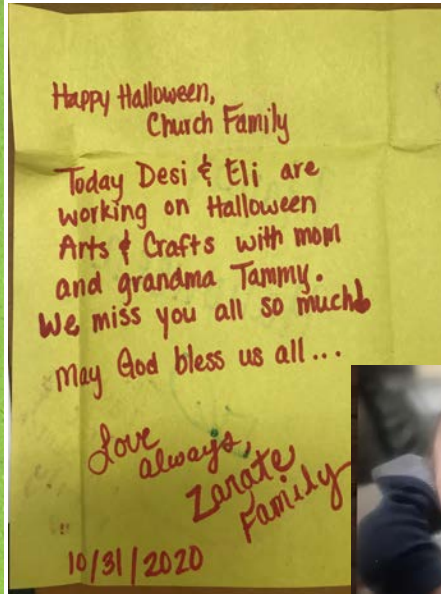 Happy Halloween,
Church Family
Today Desi & Eli are
working on Halloween
Arts & Crafts with mom
and grandma Tammy.
We miss you all so much!
May God bless us all...
Love
always,
Zarate
Family
10/31/2020